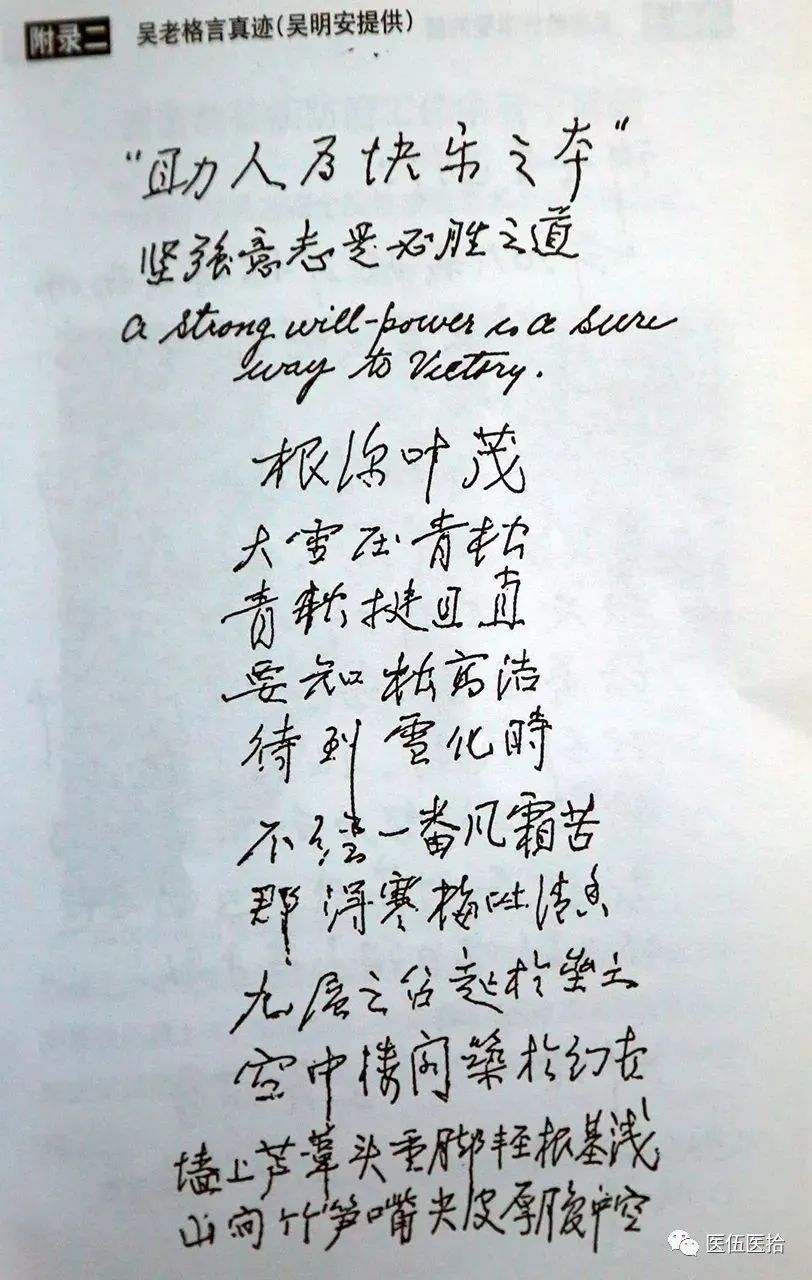 附录二 吴老格言真迹(吴明安提供)
“助人乃快乐之本”
坚强意志是必胜之道
a strong will-power is a sure
way to Victory.
根深叶茂
大雪压青松
青松挺且直
要知松高洁
待到雪化時
不经一番风霜苦
那得寒梅吐清香
九层之台起於垒土
空中楼阁築於幻想
墙上芦苇头重脚轻根基浅
山间竹笋嘴尖皮厚腹中空
医伍医拾